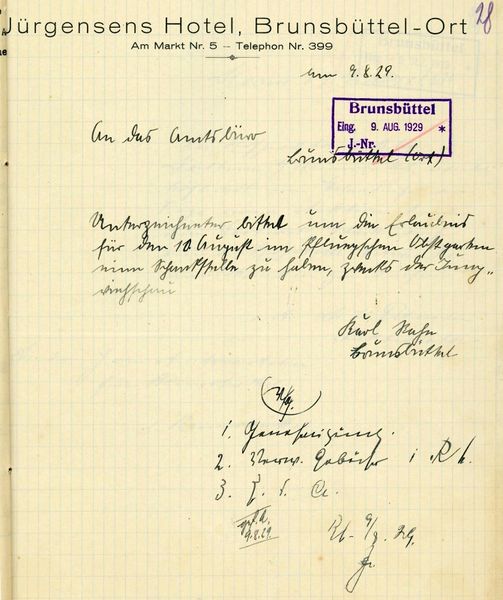 Jürgensens Hotel, Brunsbüttel-Ort
28
Am Markt Nr. 5 — Telephon Nr. 399
am 9.8.29.
Brunsbüttel
Eing. 9. AUG. 1929 *
J.-Nr.
An das Amtsbüro
Brunsbüttel (Ort)
Unterzeichneter bittet um die Erlaubnis
für den 10 August im Pflueg'schen Obstgarten
eine Schankstelle zu haben, zwecks der Jung-
viehschau
Karl
Brunsbüttel
1. Genehmigung.
2. Verw. Gebühr 1 R
3. Z. d. A.
9.8.29.
9/8. 29.